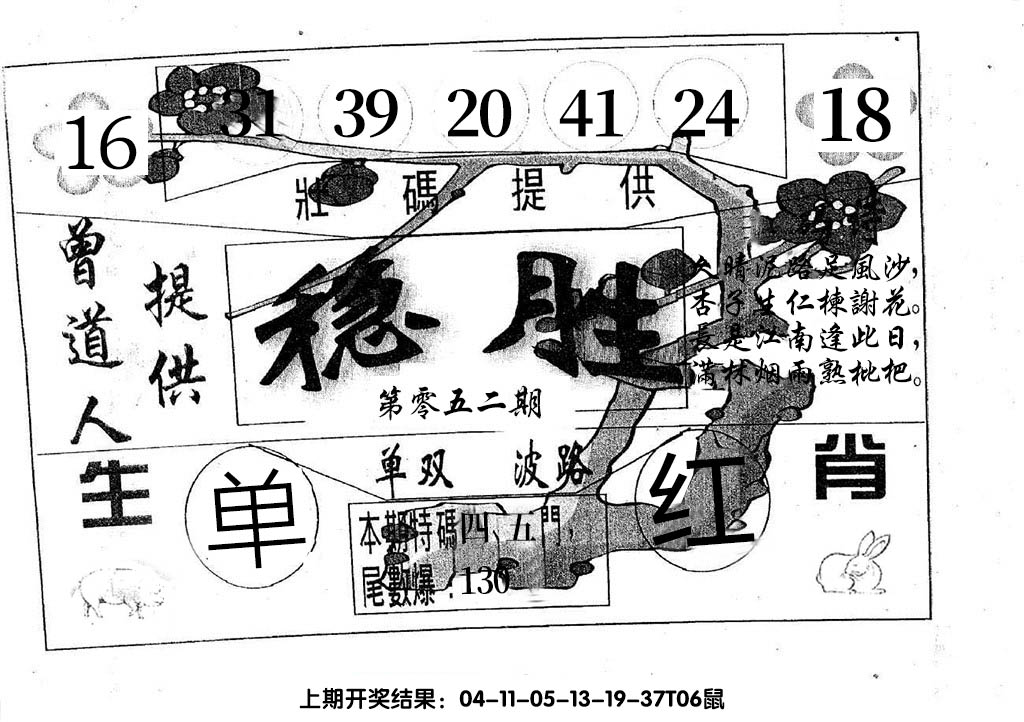 16 31 39 20 41 24 18
壯碼提供
曾道人
提供
稳胜
第零五二期
晴泥路足風沙，
杏子生仁楝謝花。
長是江南逢此日，
滿林烟雨熟枇杷。
生肖
单双 波路
单 红
本期特碼四、五門，
尾數爆：130
上期开奖结果：04-11-05-13-19-37T06鼠